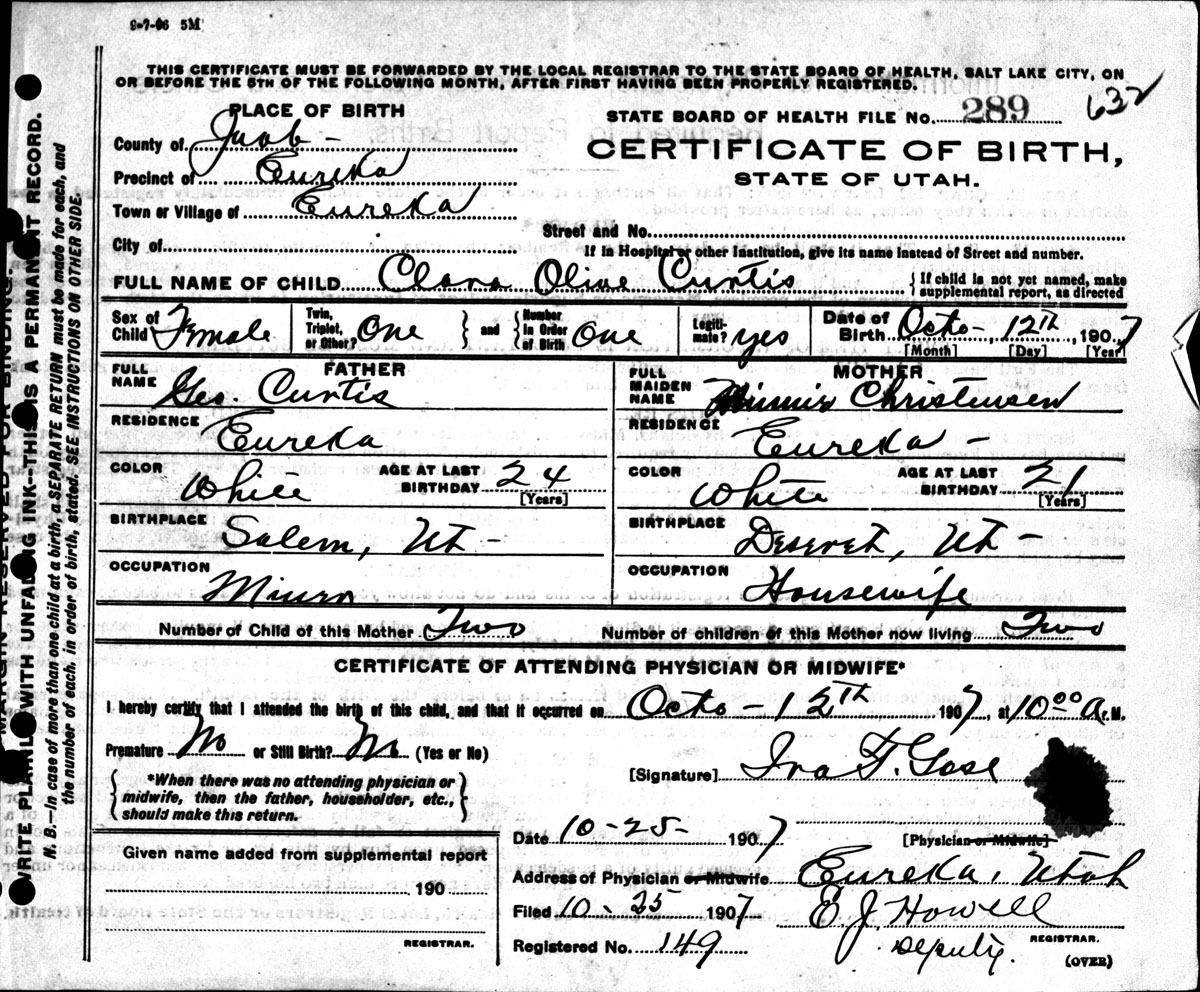 9-7-06 5M
THIS CERTIFICATE MUST BE FORWARDED BY THE LOCAL REGISTRAR TO THE STATE BOARD OF HEALTH, SALT LAKE CITY, ON
OR BEFORE THE 5TH OF THE FOLLOWING MONTH, AFTER FIRST HAVING BEEN PROPERLY REGISTERED.
PLACE OF BIRTH
STATE BOARD OF HEALTH FILE NO. 289 632
County of Juab -
CERTIFICATE OF BIRTH,
Precinct of Eureka
STATE OF UTAH.
Town or Village of Eureka
Street and No.
City of
If in Hospital or other Institution, give its name instead of Street and number.
FULL NAME OF CHILD Clara Olive Curtis { If child is not yet named, make supplemental report, as directed
Sex of Child Female Twin, Triplet, or Other? One } and { Number in Order of Birth One Legitimate? yes Date of Birth Octo - 12th, 1907
[Month] [Day] [Year]
FATHER
FULL NAME Geo. Curtis
RESIDENCE Eureka
COLOR White AGE AT LAST BIRTHDAY 24 [Years]
BIRTHPLACE Salem, Ut -
OCCUPATION Miner
MOTHER
FULL MAIDEN NAME Minnie Christensen
RESIDENCE Eureka -
COLOR White AGE AT LAST BIRTHDAY 21 [Years]
BIRTHPLACE Deseret, Ut -
OCCUPATION Housewife
Number of Child of this Mother Two Number of children of this Mother now living Two
CERTIFICATE OF ATTENDING PHYSICIAN OR MIDWIFE*
I hereby certify that I attended the birth of this child, and that it occurred on Octo - 12th, 1907, at 10 00 A. M.
Premature No or Still Birth? No (Yes or No)
[Signature] Ira F. Gose
{ *When there was no attending physician or
midwife, then the father, householder, etc.,
should make this return. }
Date 10-25- 1907 [Physician or Midwife]
Given name added from supplemental report
190
REGISTRAR.
Address of Physician or Midwife Eureka, Utah
Filed 10-25 1907 E. J. Howell
REGISTRAR.
Registered No. 149 Deputy.
(OVER)
MARGIN RESERVED FOR BINDING.
WRITE PLAINLY WITH UNFADING INK—THIS IS A PERMANENT RECORD.
N. B.—In case of more than one child at a birth, a SEPARATE RETURN must be made for each, and
the number of each, in order of birth, stated. SEE INSTRUCTIONS ON OTHER SIDE.